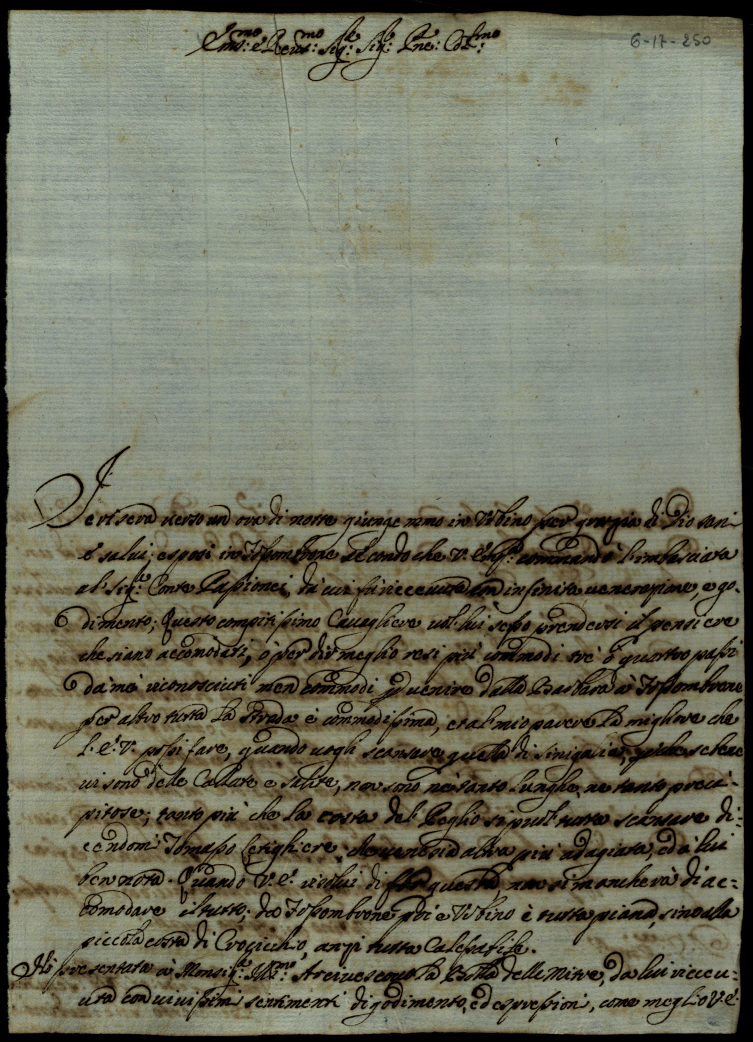 Em.mo e Reu.mo Sig.re Sig.re Pne: Col.mo
6-17-250
Ieri sera uerso un ora di notte giungemmo in Vrbino per grazia di Dio sani
e salui; esposi in Fossombrone secondo che V. Em.a commandò l'imbasciata
al Sig.re Conte Passionei, da cui fù riceuuta con infinita uenerazione, e go-
dimento; Questo compitissimo Caualiere uol lui stesso prendersi il pensiere
che siano accomodati, ò per dir meglio resi più commodi trè ò quattro passi
da me riconosciuti men commodi p uenire dalla à Fossombrone
per altro tutta la strada è commodissima, et al mio parere la migliore che
l'E. V. possi fare, quando uogli scansare quella di Sinigaglia, perche se bene
ui sono delle Callate e salite, non sono ne tanto lunghe, ne tanto preci-
pitose; tanto più che la costa del Peglio si può tutta scansare di-
cendomi Tomasso che ue ne sia altra più adagiata, ed à lui
ben nota. Quando V. E. risolui di far questa, non si mancherà di ac-
comodare il tutto; da Fossombrone poi e Vrbino è tutta piana, sino alla
piccola costa di Crocicchio, anzi tutta Calessabile.
Hò presentata à Monsig.re Ill.mo Arciuescouo la delle Mitre, da lui riceu-
uta con uiuissimi sentimenti di godimento, ed espressioni, come meglio V. E.